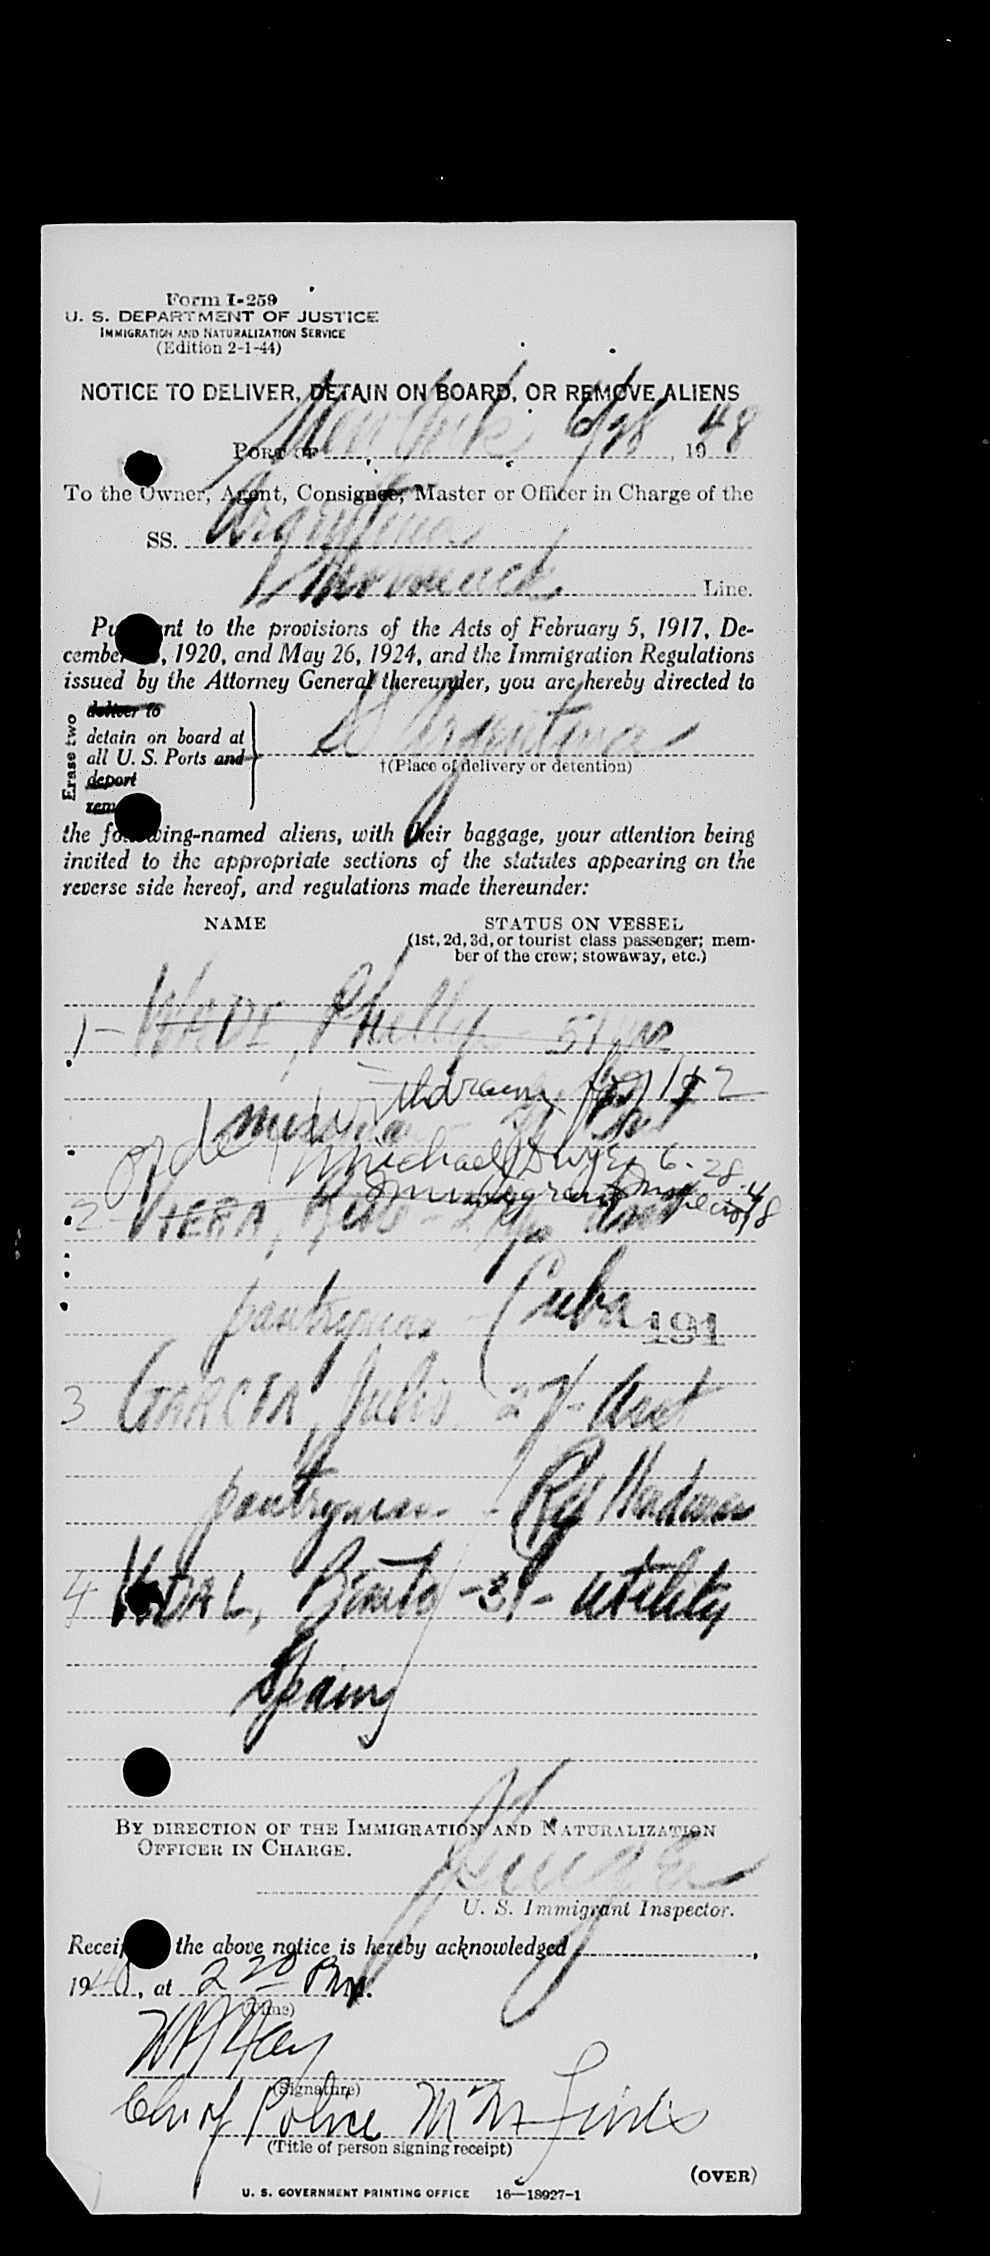 Form I-259
U. S. DEPARTMENT OF JUSTICE
IMMIGRATION AND NATURALIZATION SERVICE
(Edition 2-1-44)
NOTICE TO DELIVER, DETAIN ON BOARD, OR REMOVE ALIENS
PORT OF New York 6/28, 1948
To the Owner, Agent, Consignee, Master or Officer in Charge of the
SS. Argentina
Line.
Pursuant to the provisions of the Acts of February 5, 1917, De-
cember , 1920, and May 26, 1924, and the Immigration Regulations
issued by the Attorney General thereunder, you are hereby directed to
Erase two
deliver to
detain on board at
all U. S. Ports and
deport
SS Argentina
†(Place of delivery or detention)
the following-named aliens, with their baggage, your attention being
invited to the appropriate sections of the statutes appearing on the
reverse side hereof, and regulations made thereunder:
NAME
STATUS ON VESSEL
(1st, 2d, 3d, or tourist class passenger; mem-
ber of the crew; stowaway, etc.)
1- WADE, Philly - 51 yrs
order withdrawn
Michael Dwyer 6-28-48
Immigrant Inspector
2- VIERA,
pantryman - Cuba
191
3 GARCIA, Julio 27- Asst
pantryman - Rep Honduras
4 VIDAL, Benito -31- utility
Spain
BY DIRECTION OF THE IMMIGRATION AND NATURALIZATION
OFFICER IN CHARGE.
U. S. Immigrant Inspector.
Receipt the above notice is hereby acknowledged ,
1948, at 2 20 P.m.
(Time)
(Signature)
Chief Police
(Title of person signing receipt)
(OVER)
U. S. GOVERNMENT PRINTING OFFICE 16—18927-1